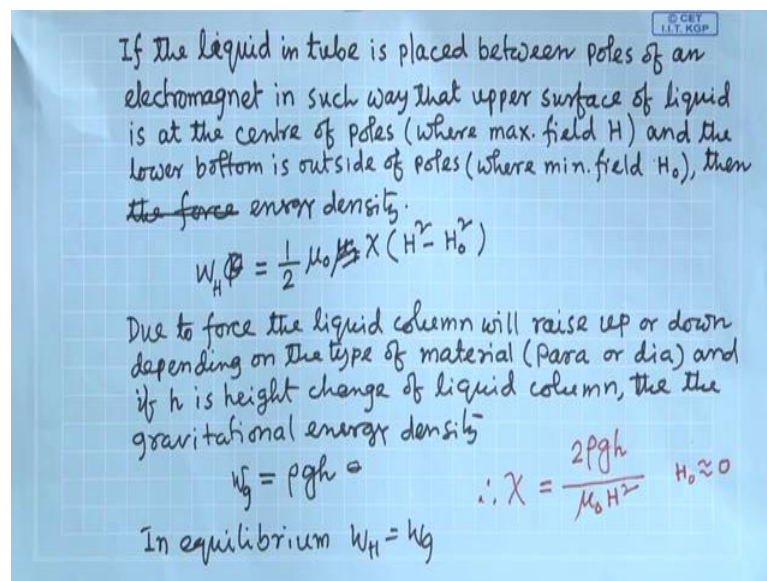 © CET
I.I.T. KGP
If the liquid in tube is placed between poles of an
electromagnet in such way that upper surface of liquid
is at the centre of poles (where max. field H) and the
lower bottom is outside of poles (where min. field H₀), then
the force energy density.
W_H = 1/2 μ₀ χ (H² - H₀²)
Due to force the liquid column will raise up or down
depending on the type of material (para or dia) and
if h is height change of liquid column, the the
gravitational energy density
W_g = ρgh
∴ χ = 2ρgh / μ₀H² H₀ ≈ 0
In equilibrium W_H = W_g